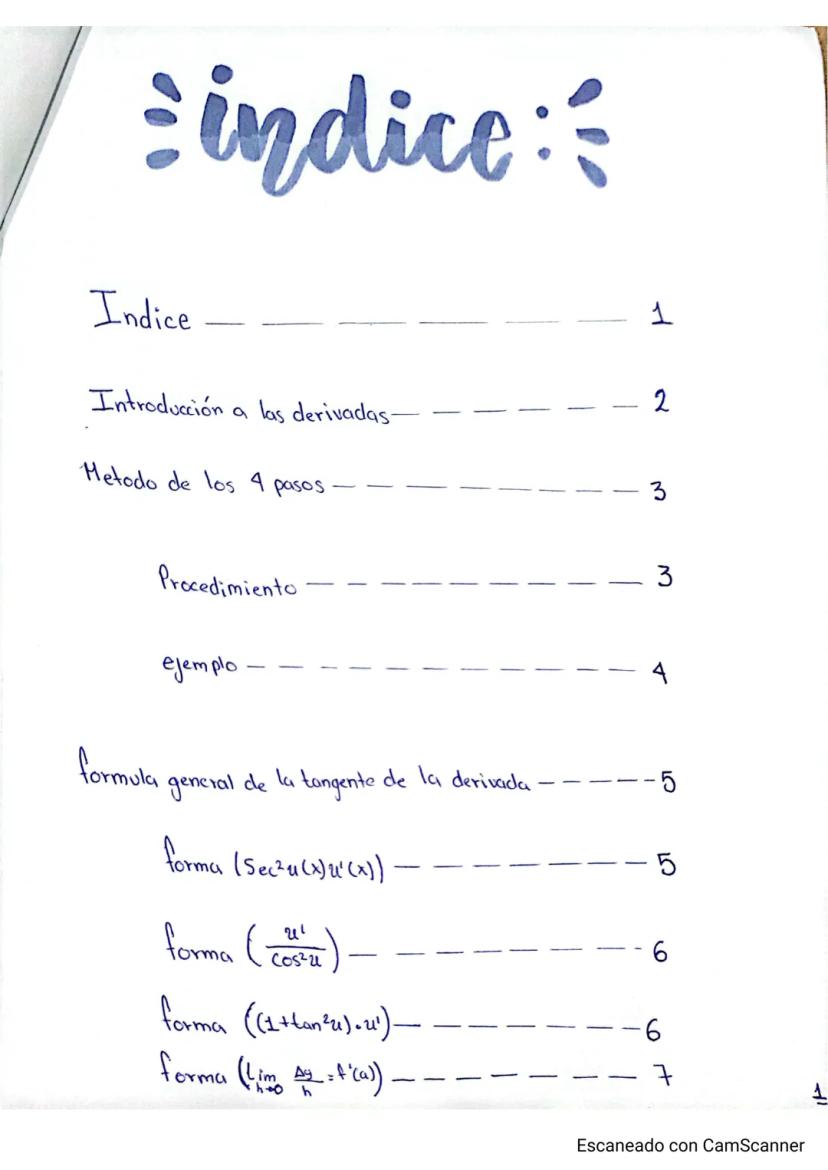 indice:
Indice — — — — — — — 1
Introducción a las derivadas — — — — — — 2
Metodo de los 4 pasos — — — — — — — — — 3
Procedimiento — — — — — — — — — 3
ejemplo — — — — — — — — — — 4
formula general de la tangente de la derivada — — — — — 5
forma (Sec²u(x)u'(x)) — — — — — — — 5
forma (u'/cos²u) — — — — — — — — 6
forma ((1+tan²u).u') — — — — — — — — 6
forma (Lim h→0 Δy/h = f'(a)) — — — — — — — 7
1
Escaneado con CamScanner